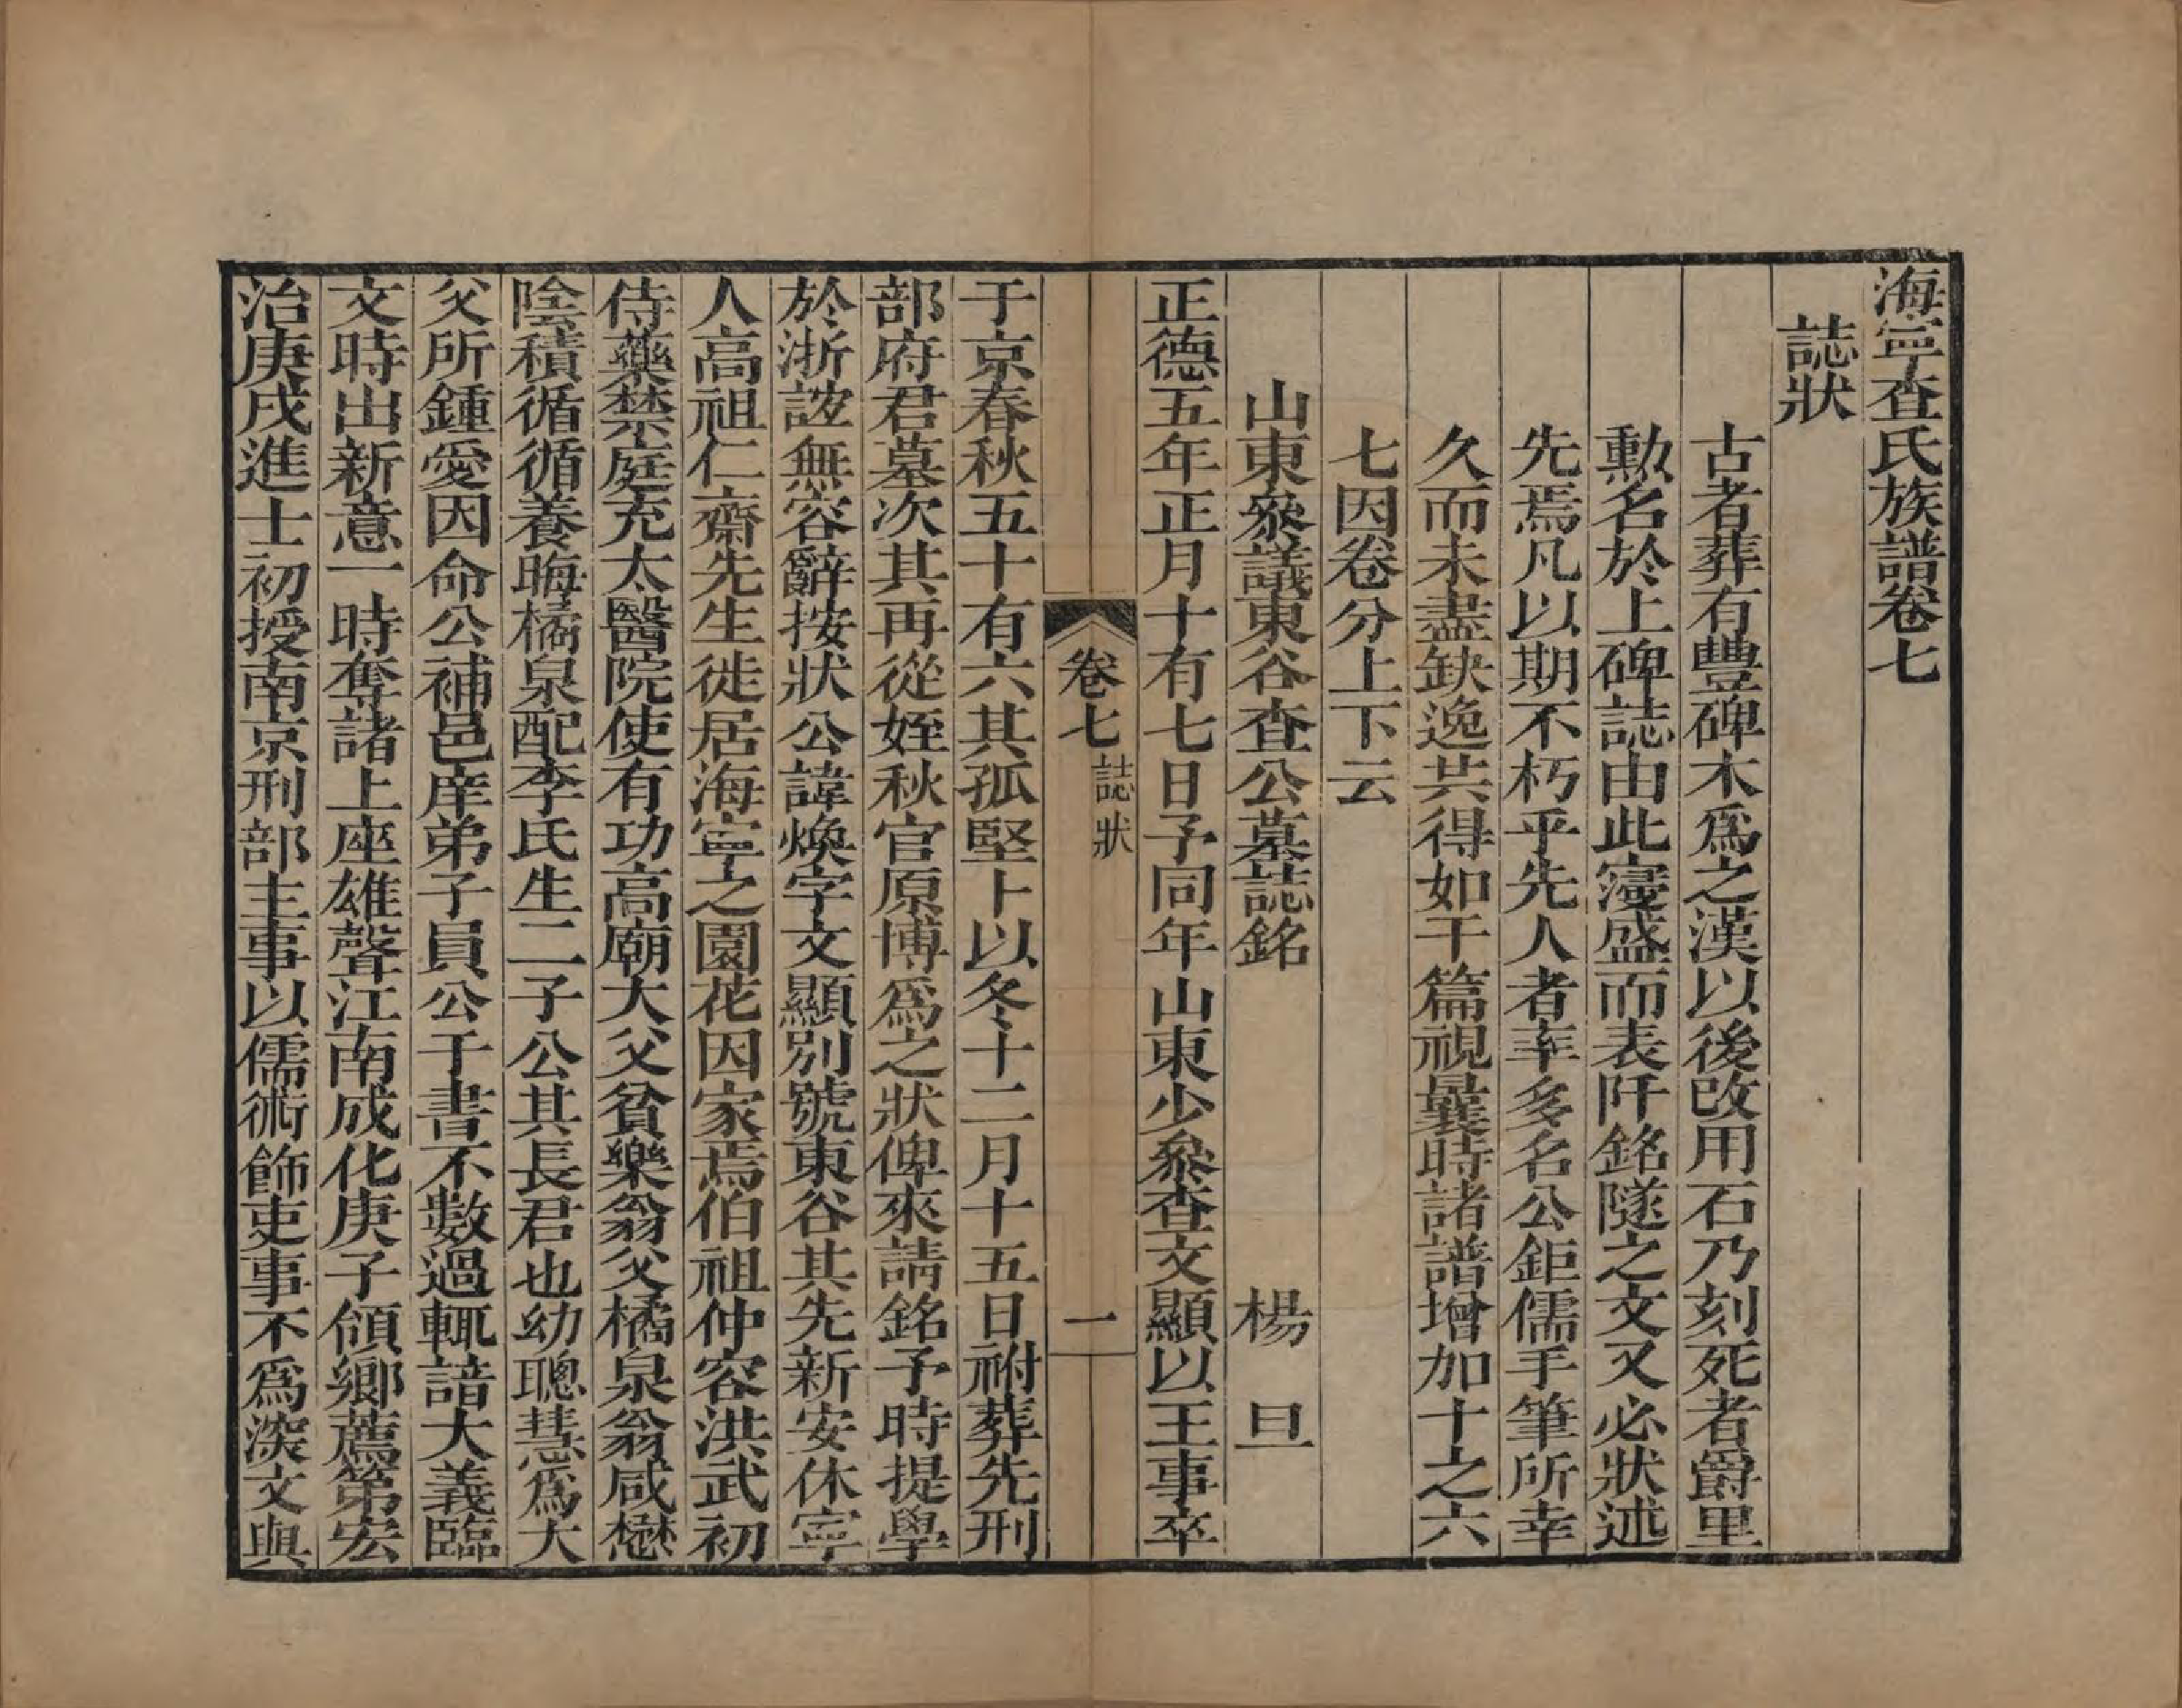 海寧查氏族譜卷七
誌狀
古者葬有豐碑木爲之漢以後改用石乃刻死者爵里
勳名於上碑誌由此寖盛而表阡銘隧之文又必狀述
先焉凡以期不朽乎先人者率多名公鉅儒手筆所幸
久而未盡缺逸共得如干篇視曩時諸譜增加十之六
七因卷分上下云
山東叅議東谷查公墓誌銘 楊旦
正德五年正月十有七日予同年山東少叅查文顯以王事卒
卷七 誌狀 一
于京春秋五十有六其孤堅卜以冬十二月十五日祔葬先刑
部府君墓次其再從姪秋官原博爲之狀俾來請銘予時提學
於浙誼無容辭按狀公諱煥字文顯別號東谷其先新安休寧
人高祖仁齋先生徙居海寧之園花因家焉伯祖仲容洪武初
侍藥禁庭充太醫院使有功高廟大父貧樂翁父橘泉翁咸懋
陰積循循養晦橘泉配李氏生二子公其長君也幼聰慧爲大
父所鍾愛因命公補邑庠弟子員公于書不數過輒諳大義臨
文時出新意一時奪諸上座雄聲江南成化庚子領鄉薦第宏
治庚戌進士初授南京刑部主事以儒術飾吏事不爲深文與